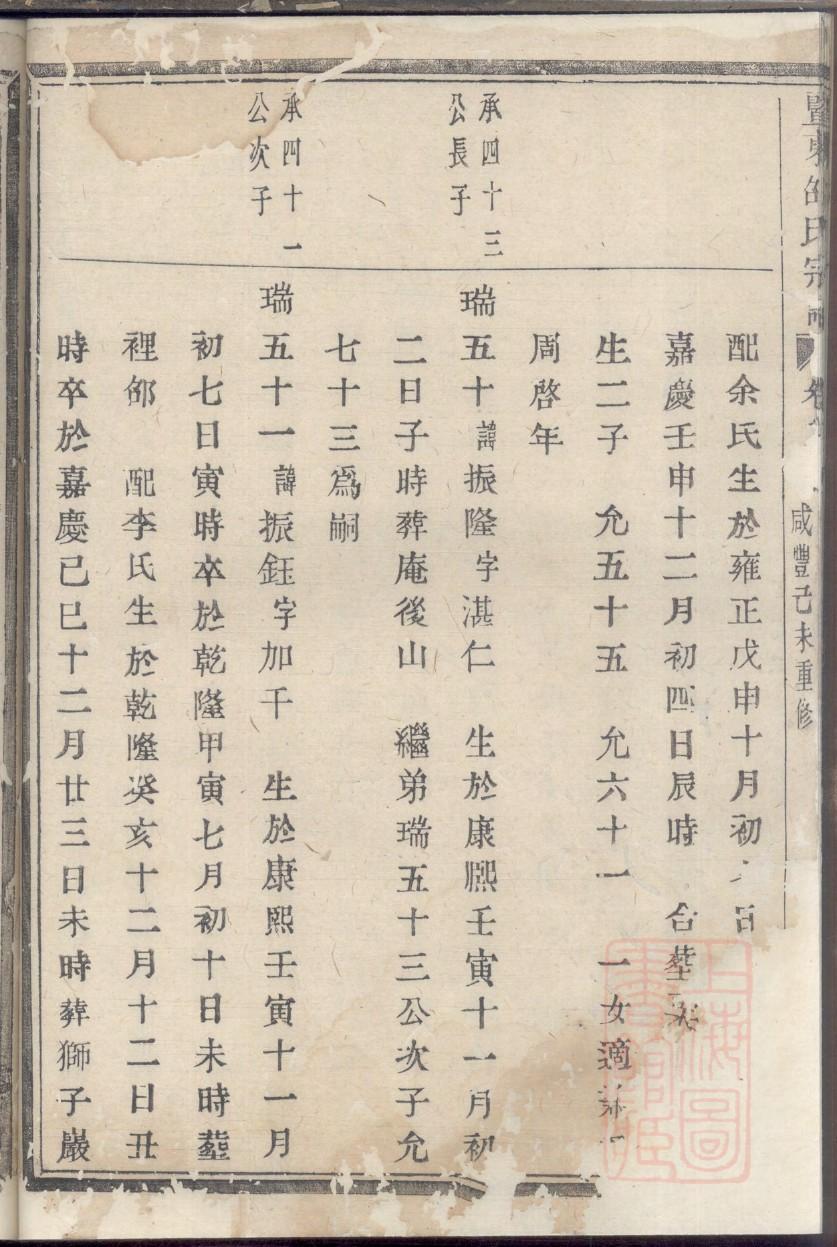 暨東邵氏宗
咸豐己未重修
配余氏生於雍正戊申十月初 日
嘉慶壬申十二月初四日辰時 合塟
生二子 允五十五 允六十一 一女適
周啓年
承四十三
公長子
瑞五十 諱振隆字湛仁 生於康熈壬寅十一月初
二日子時葬庵後山 繼弟瑞五十三公次子允
七十三爲嗣
承四十一
公次子
瑞五十一 諱振鈺字加千 生於康熙壬寅十一月
初七日寅時卒於乾隆甲寅七月初十日未時塟
裡邹 配李氏生於乾隆癸亥十二月十二日丑
時卒於嘉慶己巳十二月廿三日未時葬獅子巖
上海圖書館藏